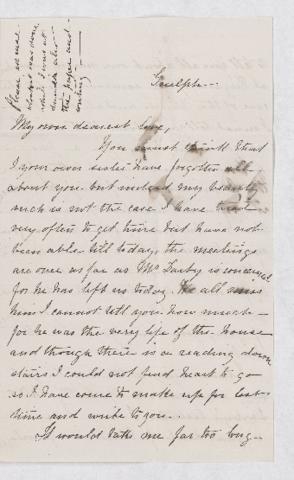 Please excuse
the paper and
writing —
Guelph —
My own dearest love,
You must think that
I your own sister have forgotten all
about you. but indeed my beauty
such is not the case I have tried
very often to get time but have not
been able till today, the meetings
are over as far as Mr. is concerned
for he has left us today. We all miss
him I cannot tell you how much —
for he was the very life of the house
and though there is a reading down
stairs I could not find heart to go
so I have come to make up for lost
time and write to you.
It would take me far too long —